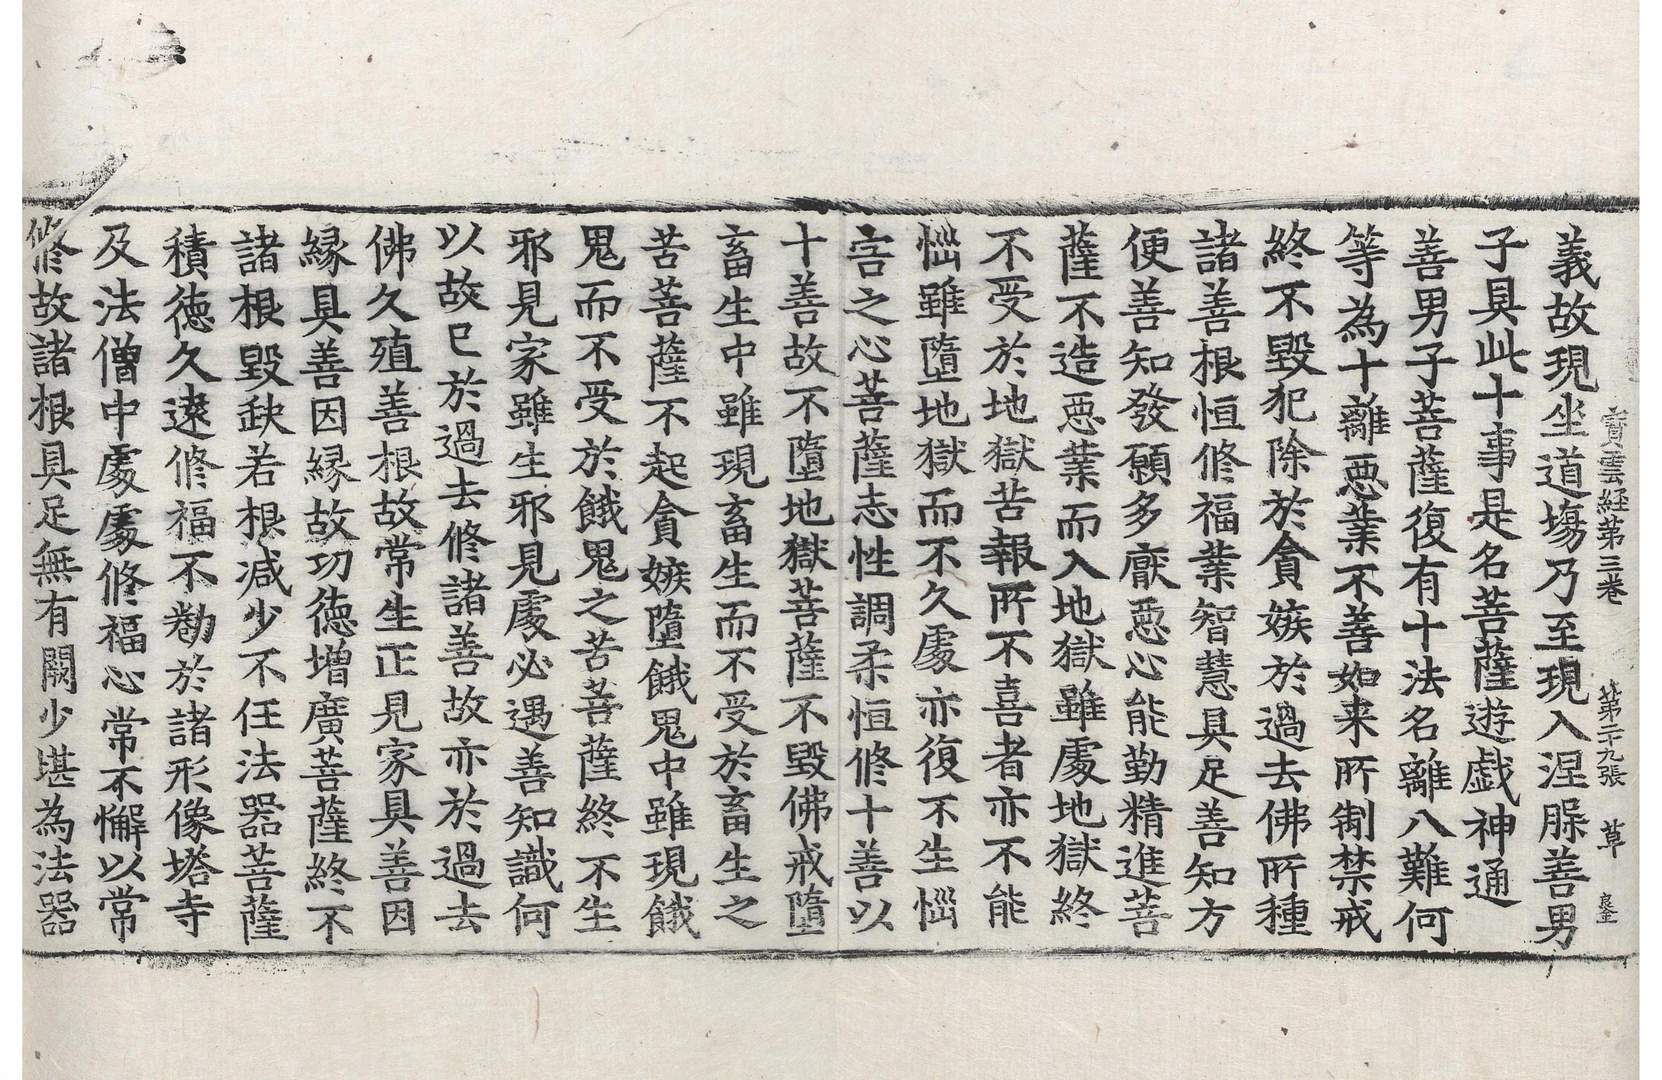 寶雲經第三卷 第二十九張 草 良全
義故現坐道塲乃至現入涅脲善男
子具此十事是名菩薩遊戯神通
善男子菩薩復有十法名離八難何
等為十離惡業不善如来所制禁戒
終不毀犯除於貪嫉於過去佛所種
諸善根恒修福業智慧具足善知方
便善知發願多猒惡心能勤精進菩
薩不造惡業而入地獄雖處地獄終
不受於地獄苦報所不喜者亦不能
惱雖墮地獄而不久處亦復不生惱
害之心菩薩志性調柔恒修十善以
十善故不墮地獄菩薩不毀佛戒墮
畜生中雖現畜生而不受於畜生之
苦菩薩不起貪嫉墮餓鬼中雖現餓
鬼而不受於餓鬼之苦菩薩終不生
邪見家雖生邪見處必遇善知識何
以故已於過去修諸善故亦於過去
佛久殖善根故常生正見家具善因
縁具善因縁故功德增廣菩薩終不
諸根毀缺若根减少不任法器菩薩
積徳久遠修福不勌於諸形像塔寺
及法僧中處處修福心常不懈以常
修故諸根具足無有闕少堪為法器